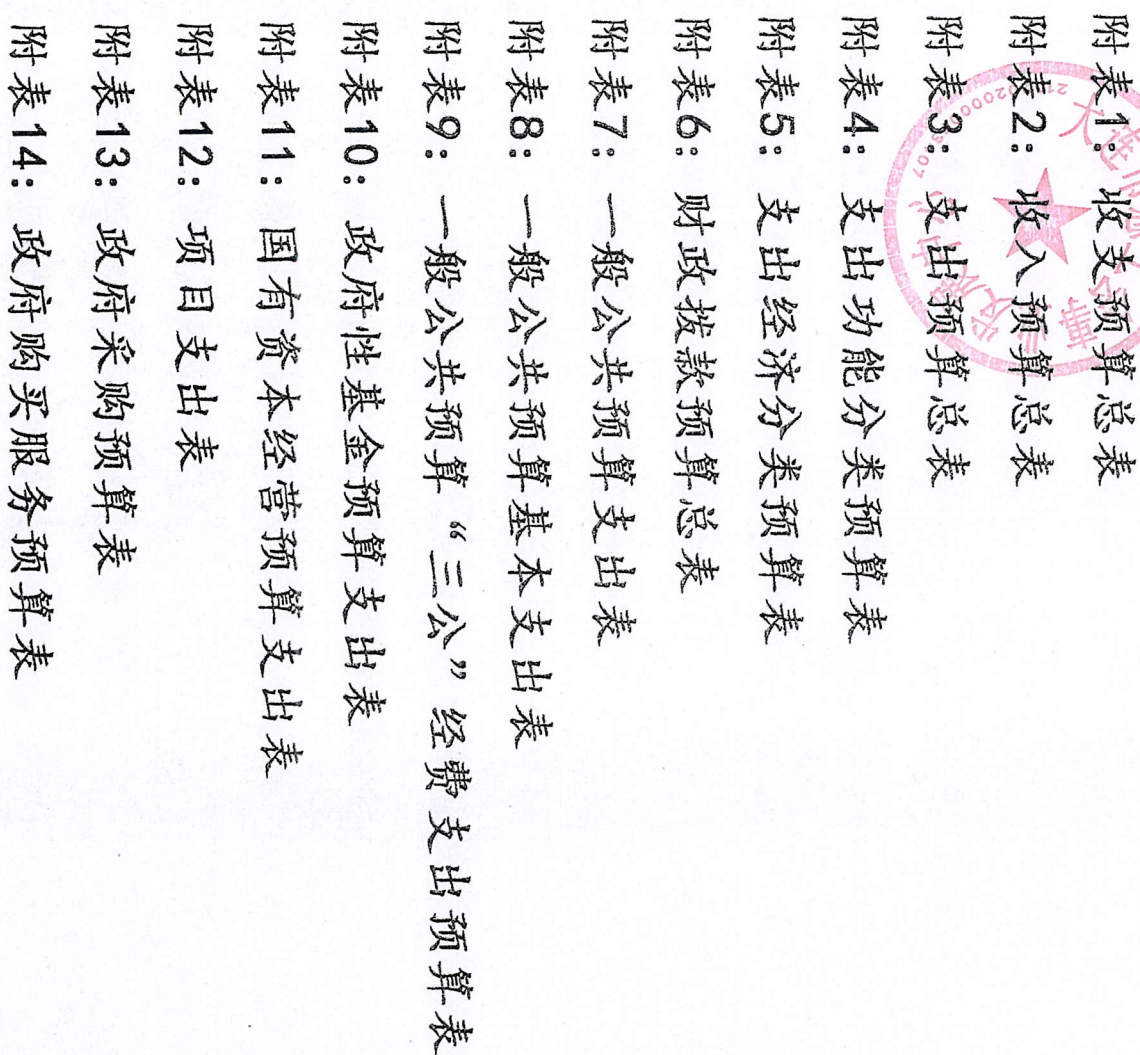 附表1：收支预算总表
附表2：收入预算总表
附表3：支出预算总表
附表4：支出功能分类预算表
附表5：支出经济分类预算表
附表6：财政拨款预算总表
附表7：一般公共预算支出表
附表8：一般公共预算基本支出表
附表9：一般公共预算“三公”经费支出预算表
附表10：政府性基金预算支出表
附表11：国有资本经营预算支出表
附表12：项目支出表
附表13：政府采购预算表
附表14：政府购买服务预算表